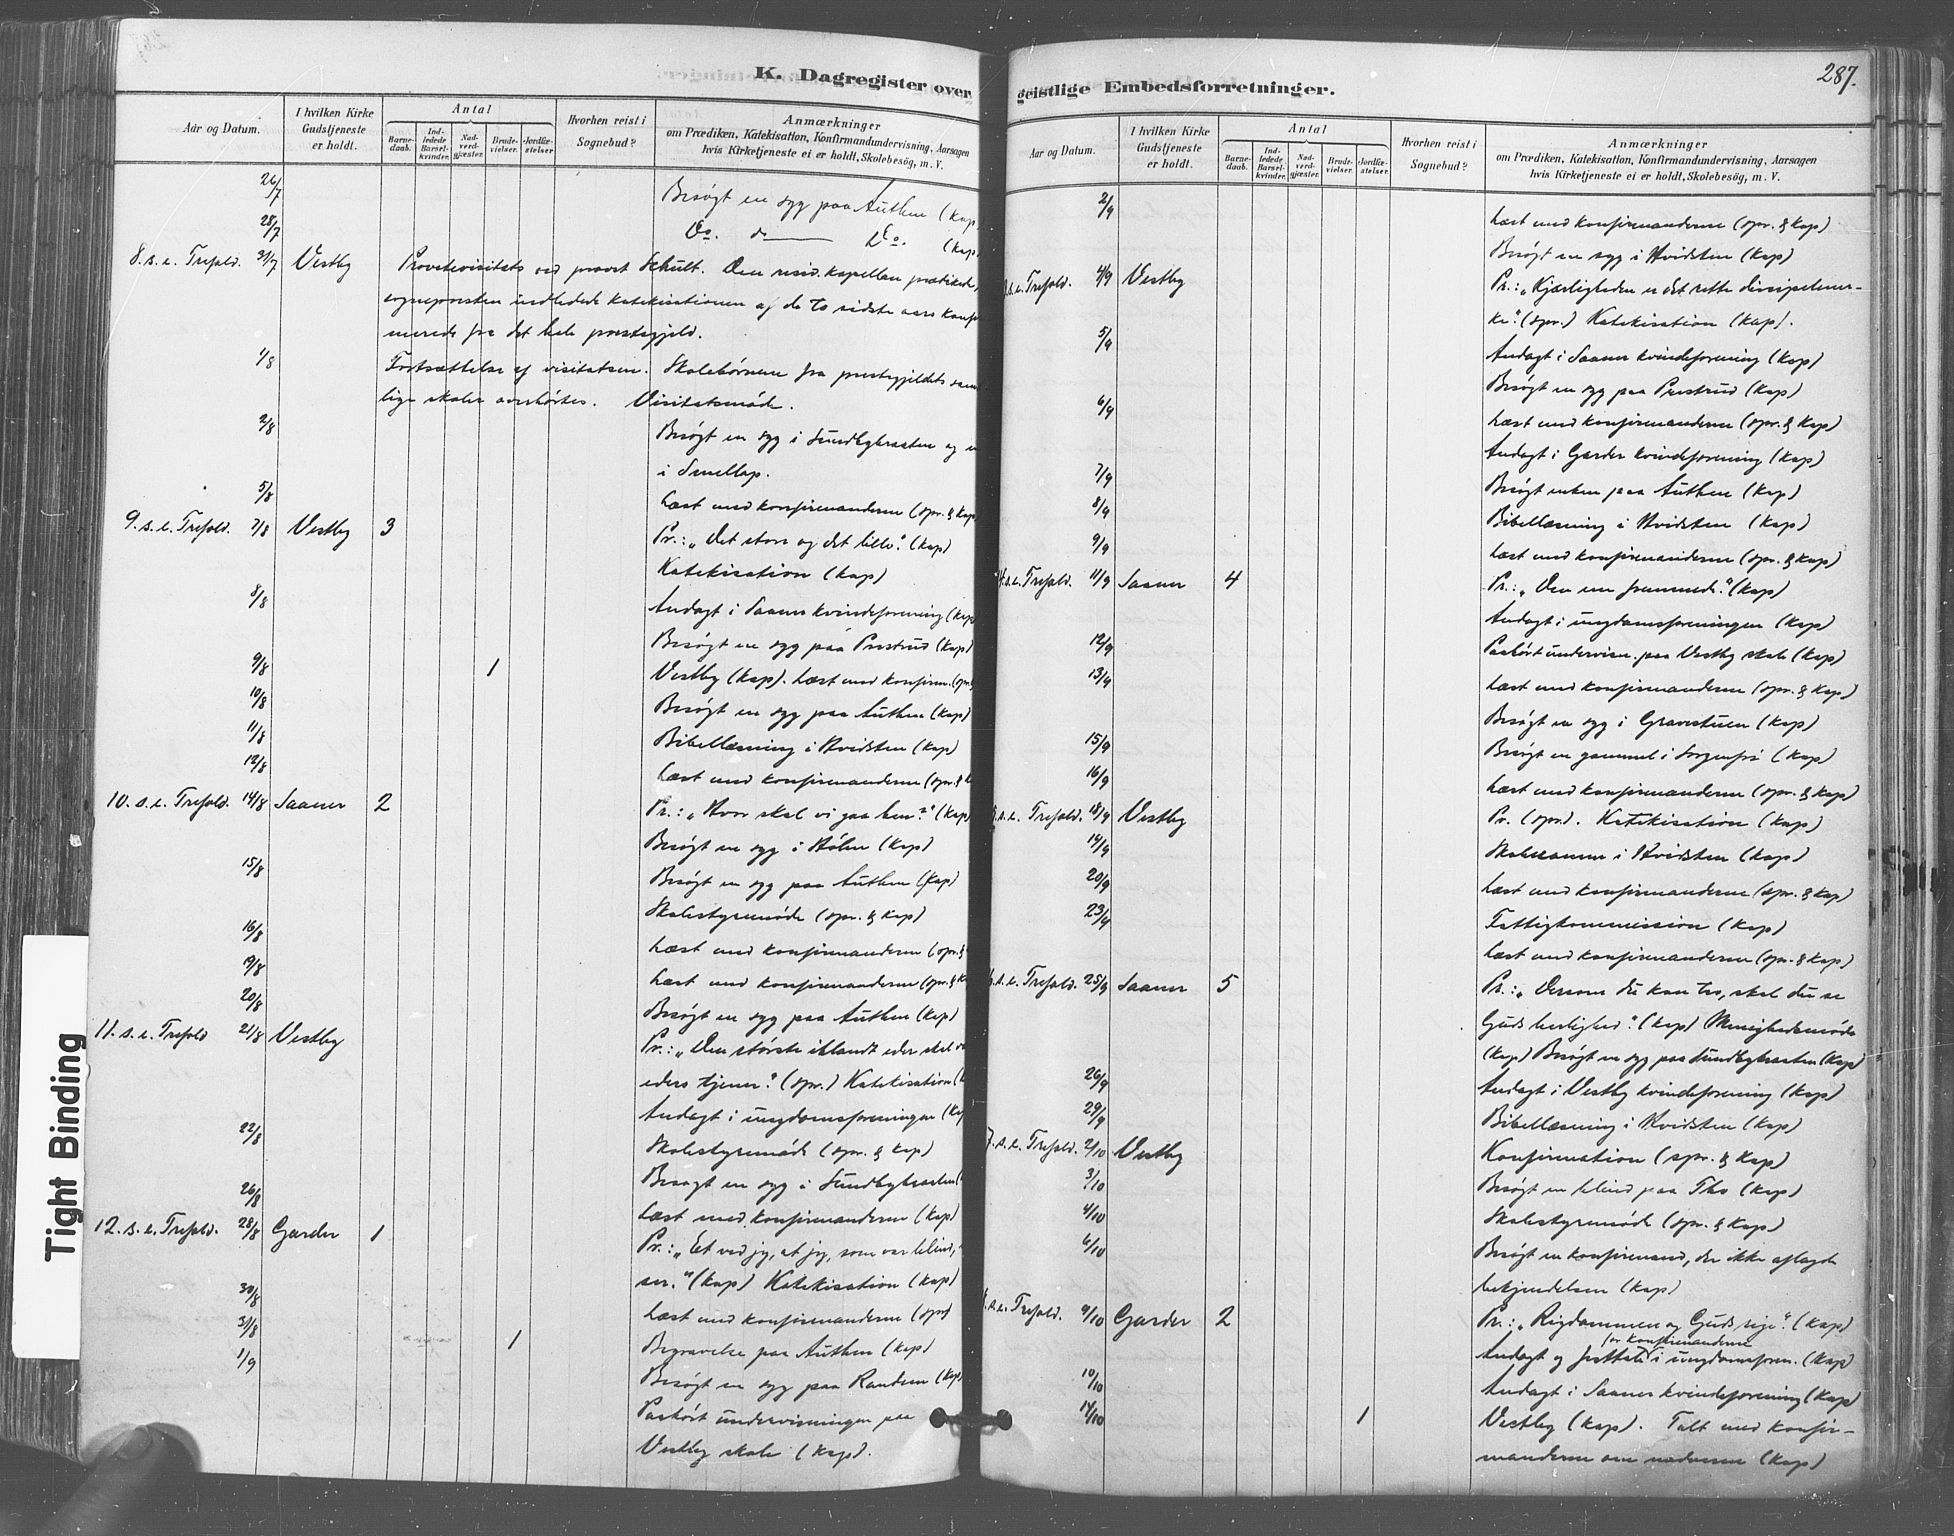 K. Dagregister over
Aar og Datum.
I hvilken Kirke Gudstjeneste er holdt.
Antal
Barne-daab.
Ind-ledede Barsel-kvinder.
Nad-verd-gjæster.
Brude-vielser.
Jordfæ-stelser.
Hvorhen reist i Sognebud?
Anmærkninger
om Prædiken, Katekisation, Konfirmandundervisning, Aarsagen
hvis Kirketjeneste ei er holdt, Skolebesøg, m. V.
26/7 Besøgt en syg paa Authen (kap
28/7 Do. do Do. (kap
8. s. e. Trefold. 31/7 Vestby Provstevisitats ved provst Schult. Den resid. kapellan prædikede,
sognepresten indledede katekisationen af de to sidste aars konfir
merede fra det hele prestegjeld.
1/8 Fortsættelse af visitatsen. Skolebørnene fra prestegjeldets sam
lige skoler overhørtes. Visitatsmøde.
2/8 Besøgt en syg i Sundbybraaten og
i Smellop.
5/8 Læst med konfirmanderne (spr. & kap
9. s. e. Trefold. 7/8 Vestby 3 Pr.: „Det store og det lille." (kap)
Katekisation (kap)
8/8 Andagt i Saaner kvindeforening (kap
Besøgt en syg paa Prestrud (kap)
9/8 1 Vestby (kap). Læst med konfirm. (spr.
10/8 Besøgt en syg paa Authen (kap)
11/8 Bibellæsning i Hvidsten (kap)
12/8 Læst med konfirmanderne (spr. &
10. s. e. Trefold. 14/8 Saaner 2 Pr.: „Hvor skal vi gaa hen?" (kap)
Besøgt en syg i Hølen (kap)
15/8 Besøgt en syg paa Authen (kap)
Skolestyremøde (spr. & kap)
16/8 Læst med konfirmanderne (spr. &
19/8 Læst med konfirmanderne (spr. & ka
20/8 Besøgt en syg paa Authen (kap)
11. s. e. Trefold 21/8 Vestby Pr.: „Den største iblandt eder skal
eders tjener." (spr.) Katekisation (
Andagt i ungdomsforeningen (kap
22/8 Skolestyremøde (spr. & kap)
Besøgt en syg i Sundbybraaten (
26/8 Læst med konfirmanderne (kap)
12. s. e. Trefold. 28/8 Garder 1 Pr.: „Et ved jeg, at jeg, som var blind,
ser." (kap) Katekisation (kap)
30/8 Læst med konfirmanderne (spr)
31/8 1 Begravelse paa Authen (kap)
1/9 Besøgt en syg paa Randem (kap)
Paahørt undervisningen paa
Vestby skole (kap).
geistlige Embedsforretninger.
287.
Aar og Datum.
I hvilken Kirke Gudstjeneste er holdt.
Antal
Barne-daab.
Ind-ledede Barsel-kvinder.
Nad-verd-gjæster.
Brude-vielser.
Jordfæ-stelser.
Hvorhen reist i Sognebud?
Anmærkninger
om Prædiken, Katekisation, Konfirmandundervisning, Aarsagen
hvis Kirketjeneste ei er holdt, Skolebesøg, m. V.
2/9 Læst med konfirmanderne (spr. & kap)
Besøgt en syg i Hvidsten (kap)
s. e. Trefold. 4/9 Vestby Pr.: „Kjærligheden er det rette discipelmær-
ke." (spr.) Katekisation (kap).
5/9 Andagt i Saaner kvindeforening (kap)
Besøgt en syg paa Prestrud (kap)
6/9 Læst med konfirmanderne (spr. & kap)
Andagt i Garder kvindeforening (kap)
7/9 Besøgt enken paa Authen (kap)
8/9 Bibellæsning i Hvidsten (kap)
9/9 Læst med konfirmanderne (spr. & kap)
4. s. e. Trefold. 11/9 Saaner 4 Pr.: „Den ene fremmede." (kap)
Andagt i ungdomsforeningen (kap)
12/9 Paahørt undervisn. paa Vestby skole (kap)
13/9 Læst med konfirmanderne (spr. & kap)
Besøgt en syg i Gravestuen (kap)
15/9 Besøgt en gammel i Sorgenfri (kap)
16/9 Læst med konfirmanderne (spr. & kap)
s. e. Trefold. 18/9 Vestby Pr. (spr.). Katekisation (kap)
19/9 Skoleexamen i Hvidsten (kap)
20/9 Læst med konfirmanderne (spr. & kap)
23/9 Fattigkommission (kap)
Læst med konfirmanderne (spr. & kap)
s. e. Trefold. 25/9 Saaner 5 Pr.: „Dersom du kan tro, skal du se
Guds herlighed." (kap) Menighedsmøde
(kap) Besøgt en syg paa Sundbybraaten (kap)
26/9 Andagt i Vestby kvindeforening (kap)
29/9 Bibellæsning i Hvidsten (kap)
7. s. e. Trefold. 2/10 Vestby Konfirmation (spr. & kap)
3/10 Besøgt en blind paa Tho (kap)
4/10 Skolestyremøde (spr. & kap)
6/10 Besøgt en konfirmand, der ikke aflagde
bekjendelsen (kap)
s. e. Trefold. 9/10 Garder 2 Pr.: „Rigdommen og Guds rige." (kap)
for konfirmanderne
Andagt og festtale i ungdomsforen. (kap)
10/10 Andagt i Saaner kvindeforening (kap)
14/10 1 Vestby (kap). Talt med konfir-
manderne om nadveren (kap)
Tight Binding